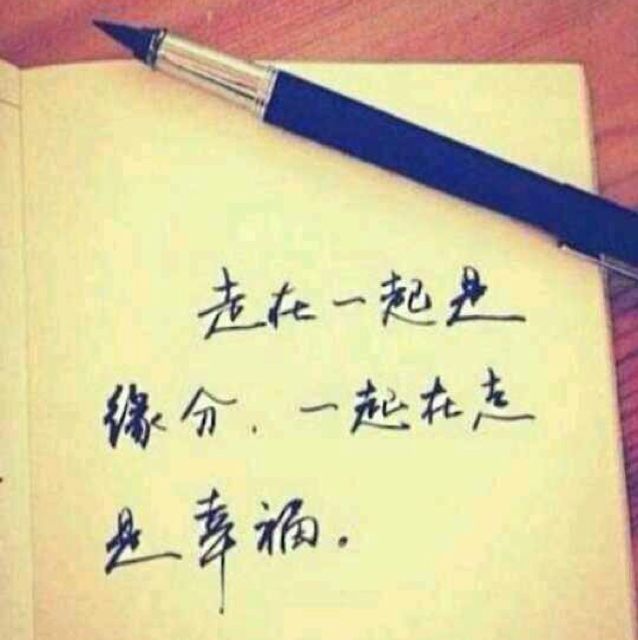 走在一起是
缘分、一起在走
是幸福。